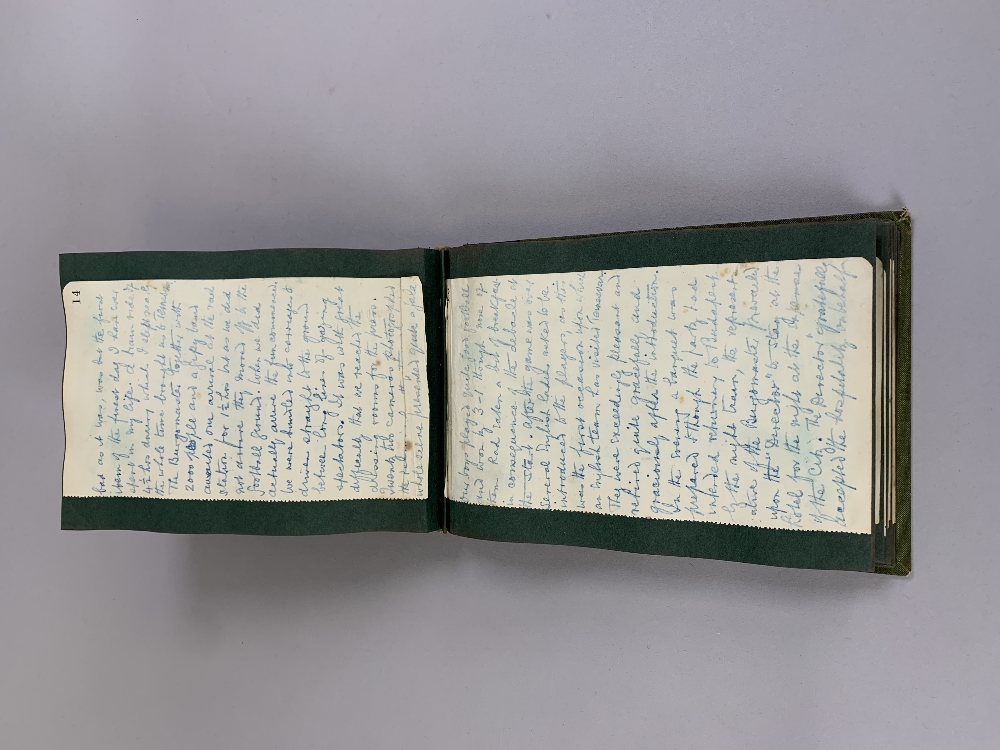 14
bad as it was, was but the first
seen of the finest day I had ever
spent in my life. A train ride of
4½ hours during which I
the whole team brought us to Temesvar
The Burgomaster together with
2000 people and a fifty band
awaited our arrival at the rail
station for ½ hour but as we did
not arrive they moved off to the
football ground. When we did
actually arrive the fun commenced.
We were bundled into carriages &
driven straight to the ground
between long lines of gazing
spectators. It was with great
difficulty that we reached the
dressing rooms, so the mob
swords
whole scene presented quite a fete
Our boys played quite good football
and won by 3-1 though one of
in consequence of the default of
the start. After the game was over
several English ladies asked to be
introduced to the players as this
was the first occasion upon which
an Irish team has visited Temesvar.
They were exceedingly pleasant and
retired quite gracefully and
graciously after the introduction.
In the evening a banquet was
prepared & though the party had
intended returning to Budapest
by the night train, the represent-
ative of the Burgomaster, prevailed
upon the Directors to stay at the
Hotel for the night at the expense
of the City. The Directors gratefully
accepted the hospitality